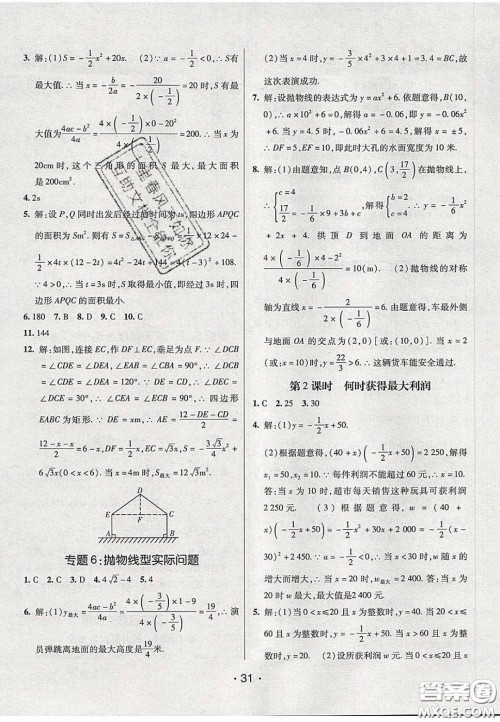 3. 解:(1)S=-1/2x²+20x. (2)∵a=-1/2<0,∴S有
最大值.∴当x=-b/2a=-20/(2×(-1/2))=20时,S有最
大值为(4ac-b²)/4a=(4×(-1/2)×0-20²)/(4×(-1/2))=200.∴当x为
20cm时,这个三角形的面积S最大,最大面积
是200cm².
4. 2s
5. 解:设P,Q同时出发后经过的时间为ts,四边形APQC
的面积为Sm².则有S=
1/2×4t×(12-2t)=4t²-24t+144=4(t-3)²+108.
∵4>0,∴当t=3s时,S取得最小值.即3s时,四边
形APQC的面积最小.
6. 180 7. B 8. D 9. C 10. C
11. 144
12. 解:如图,连接EC,作DF⊥EC,垂足为点F.∵∠DCB
=∠CDE=∠DEA,∠EAB=∠CBA=90°,∴∠DCB
=∠CDE=∠DEA=120°.∵DE=CD,∴∠DEC=
∠DCE=30°,∴∠CEA=∠ECB=90°,∴四边形
EABC为矩形.∵DE=CD=
∴DE=xm,∴AE=6-x,DF=1/2x,EC=√3x,S=-3√3/4x²+
6√3x(0<x<6).当x=4m时,S最大=12√3m².
D
E
F
C
A
B
专题6:抛物线型实际问题
1. C 2. C 3. D 4. 4√2-4 5. 4
6. 解:(1)y最大=(4ac-b²)/4a=(4×(-3/5)×1-9)/(4×(-3/5))=19/4,∴演
员弹跳离地面的最大高度是19/4米.
(2)当x=4时,y=-3/5×4²+3×4+1=3.4=BC,故
这次表演成功.
7. 解:设抛物线的表达式为y=ax²+6.依题意得,B(10,
0),∴a×10²+6=0.解得a=-0.06.即y=-0.06x²
+6.当y=4.5时,-0.06x²+6=4.5.解得x=±5,
∴DF=5,EF=10.即此时大孔的水面宽度为10米.
8. 解:(1)由题意知,点B(0,4),C(3,17/2)在抛物线上,
∴{c=4 17/2=-1/6×9+3b+c,∴{b=2 c=4,∴y=-1/6x²
+2x+4,拱顶D到地面OA的距离为
(4×(-1/6)×4-2²)/(4×(-1/6))=10(m). (2)抛物线的对称
轴为直线x=-2/(2×(-1/6))=6.由题意得,车最外侧
与地面OA的交点为(2,0)或(10,0).当x=2或
x=10时,y=22/3>6.∴这辆货车能安全通过.
第2课时 何时获得最大利润
1. C 2. 25 3. 30
4. 解:(1)y=-1/2x+50.
(2)根据题意得,(40+x)(-1/2x+50)=2 250,解得
x₁=50,x₂=10.∵每件利润不能超过60元,∴x=10.
答:当x为10时,超市每天销售这种玩具可获利润
2 250元. (3)根据题意得,w=(40+x)
(-1/2x+50)=-1/2x²+30x+2 000=-1/2(x-
30)²+2 450.∵a=-1/2<0,∴当x<30时,w随x的
增大而增大,∴当x=20时,w最大=2 400.答:当x
为20时,w最大,最大值是2 400元.
5. 解:(1)当0<x≤20且x为整数时,y=40;当20<x≤60且x为整数
时,y=-1/2x+50;当x>60且x为整
数时,y=20. (2)设所获利润w(元),当0<x≤20且
· 31 ·
答案圈
MXQE.COM